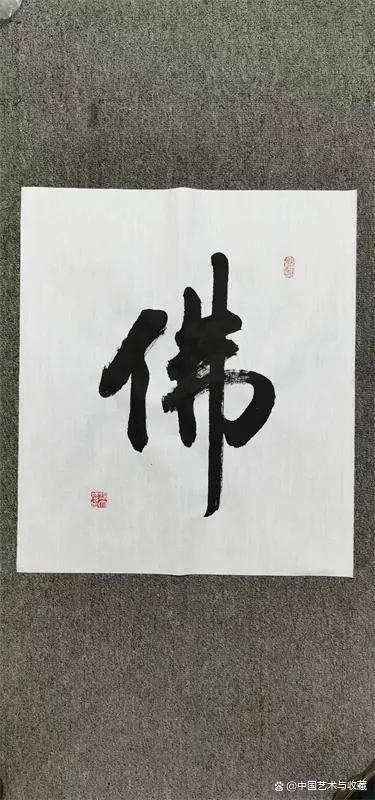 佛
@中国艺术与收藏